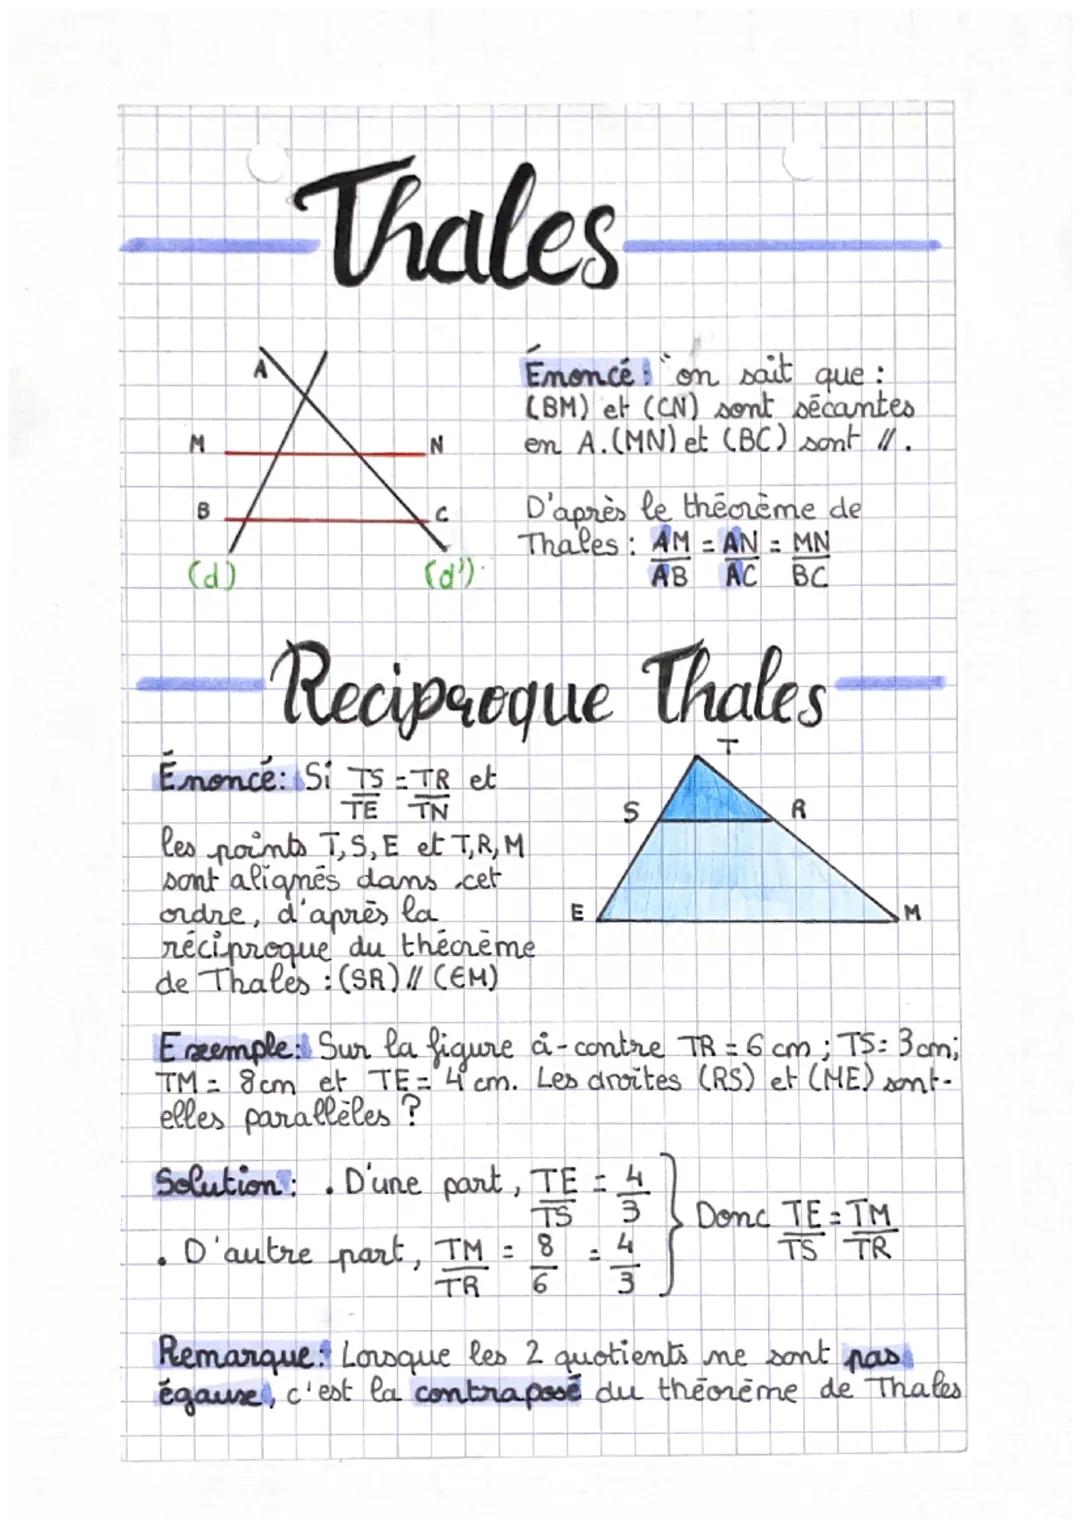 Thales
A
M N
B C
(d) (d')
Énoncé : "on sait que :
(BM) et (CN) sont sécantes
en A. (MN) et (BC) sont //.
D'après le théorème de
Thales : AM/AB = AN/AC = MN/BC
Reciproque Thales
T
S R
E M
Énoncé : Si TS/TE = TR/TN et
les points T, S, E et T, R, M
sont alignés dans cet
ordre, d'après la
réciproque du théorème
de Thales : (SR) // (EM)
Exemple : Sur la figure ci-contre TR = 6 cm ; TS = 3 cm ;
TM = 8 cm et TE = 4 cm. Les droites (RS) et (ME) sont-
elles parallèles ?
Solution : . D'une part, TE/TS = 4/3
. D'autre part, TM/TR = 8/6 = 4/3
Donc TE/TS = TM/TR
Remarque : Lorsque les 2 quotients ne sont pas
égaux, c'est la contraposé du théorème de Thales